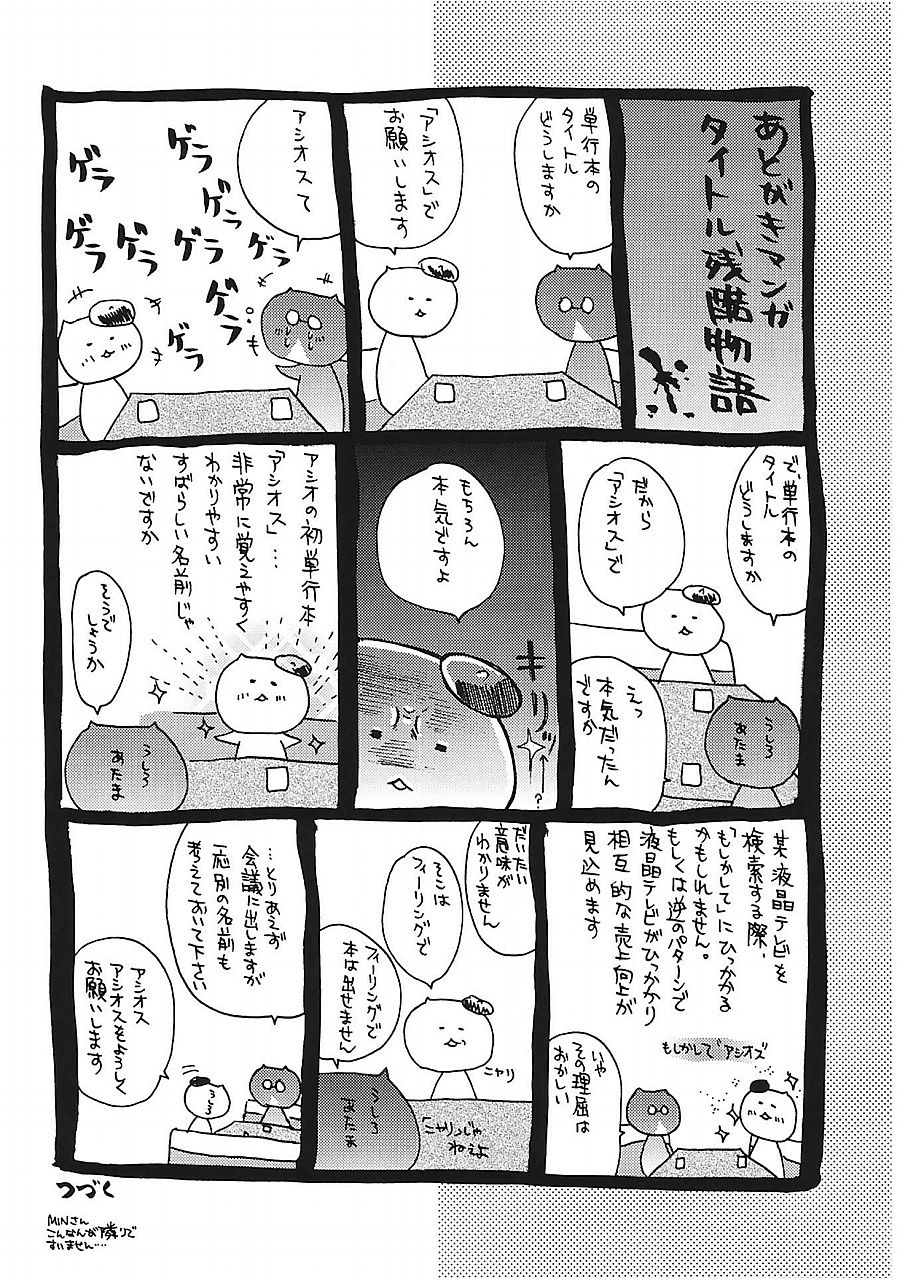 あとがきマンガ
タイトル残酷物語
単行本の
タイトル
どうしますか
「アシオス」で
お願いします
アシオスて
ゲラ
ゲラ
ゲラ
ゲラ
ゲラ
ゲラ
ゲラ
ゲラ
ゲラ
で、単行本の
タイトル
どうしますか
だから
「アシオス」で
えっ
本気だったん
ですか
うしろ
あたま
もちろん
本気ですよ
キリッ
?
アシオの初単行本
「アシオス」…
非常に覚えやすく
わかりやすい
すばらしい名前じゃ
ないですか
そうで
しょうか
うしろ
あたま
某液晶テレビを
検索する際、
「もしかして」にひっかかる
かもしれません。
もしくは逆のパターンで
液晶テレビがひっかかり
相互的な売上向上が
見込めます
もしかして アシオズ
いや
その理屈は
おかしい
だいたい
意味が
わかりません
そこは
フィーリングで
フィーリングで
本は出せません
ニヤリ
「ニヤリ」じゃ
ねぇよ
うしろ
あたま
…とりあえず
会議に出しますが
一応別の名前も
考えておいて下さい
アシオス
アシオスをよろしく
お願いします
うしろ
つづく
MINさん
こんなんが隣りで
すいません…